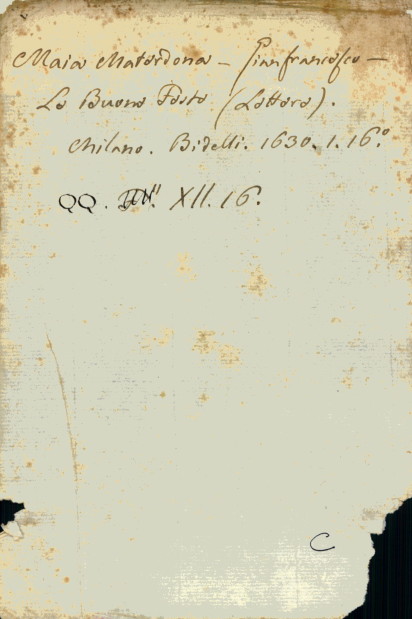 Maia Materdona - Gianfrancesco -
Le Buone Feste (Lettere).
Milano. Bidelli. 1630. 1. 16.º
QQ. XII. 16.
C